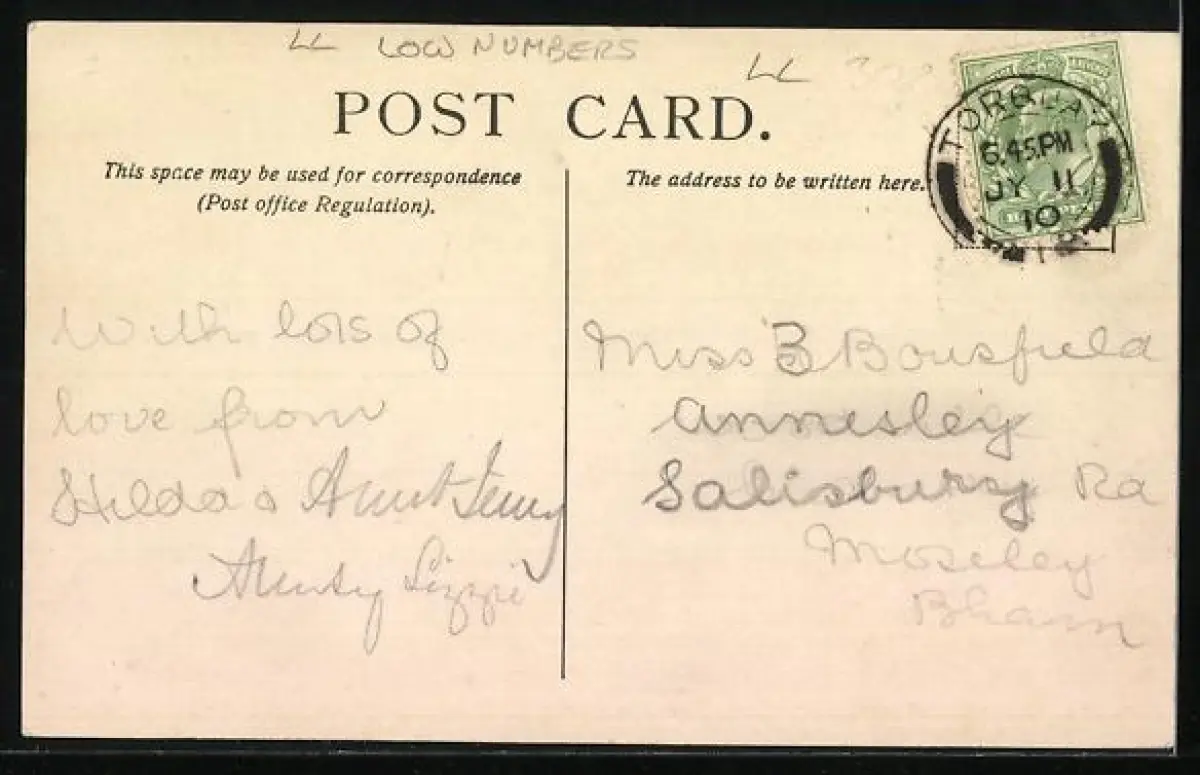 LL LOW NUMBERS LL
POST CARD.
This space may be used for correspondence
(Post office Regulation).
The address to be written here.
TORQUAY
6.45 PM
JY 11
10
With lots of
love from
Hilda & Aunt Jenny
Aunty Lizzie
Miss B Bousfield
Annesley
Salisbury Rd
Moseley
Bham